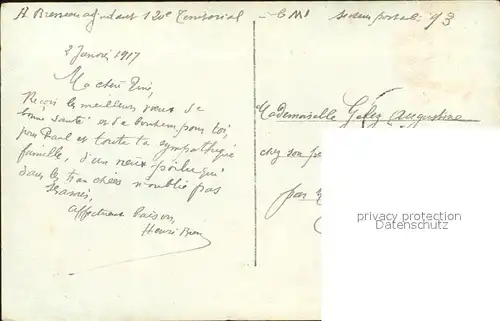 A Bresson adjudant 120e Territorial — C M I secteur postal 73
2 Janvier 1917
Ma chère
Reçois les meilleurs vœux de
bonne santé et de bonheur pour toi,
pour Paul et toute ta sympathique
famille, d'un vieux poilu qui
dans les tranchées n'oublie pas
Affectueux baisers,
Henri
Mademoiselle Augustine
chez son
privacy protection
www.delcampe.net